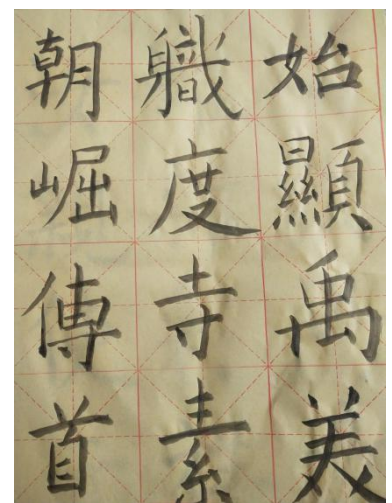 始顯禹美
軄度寺素
朝崛傳首